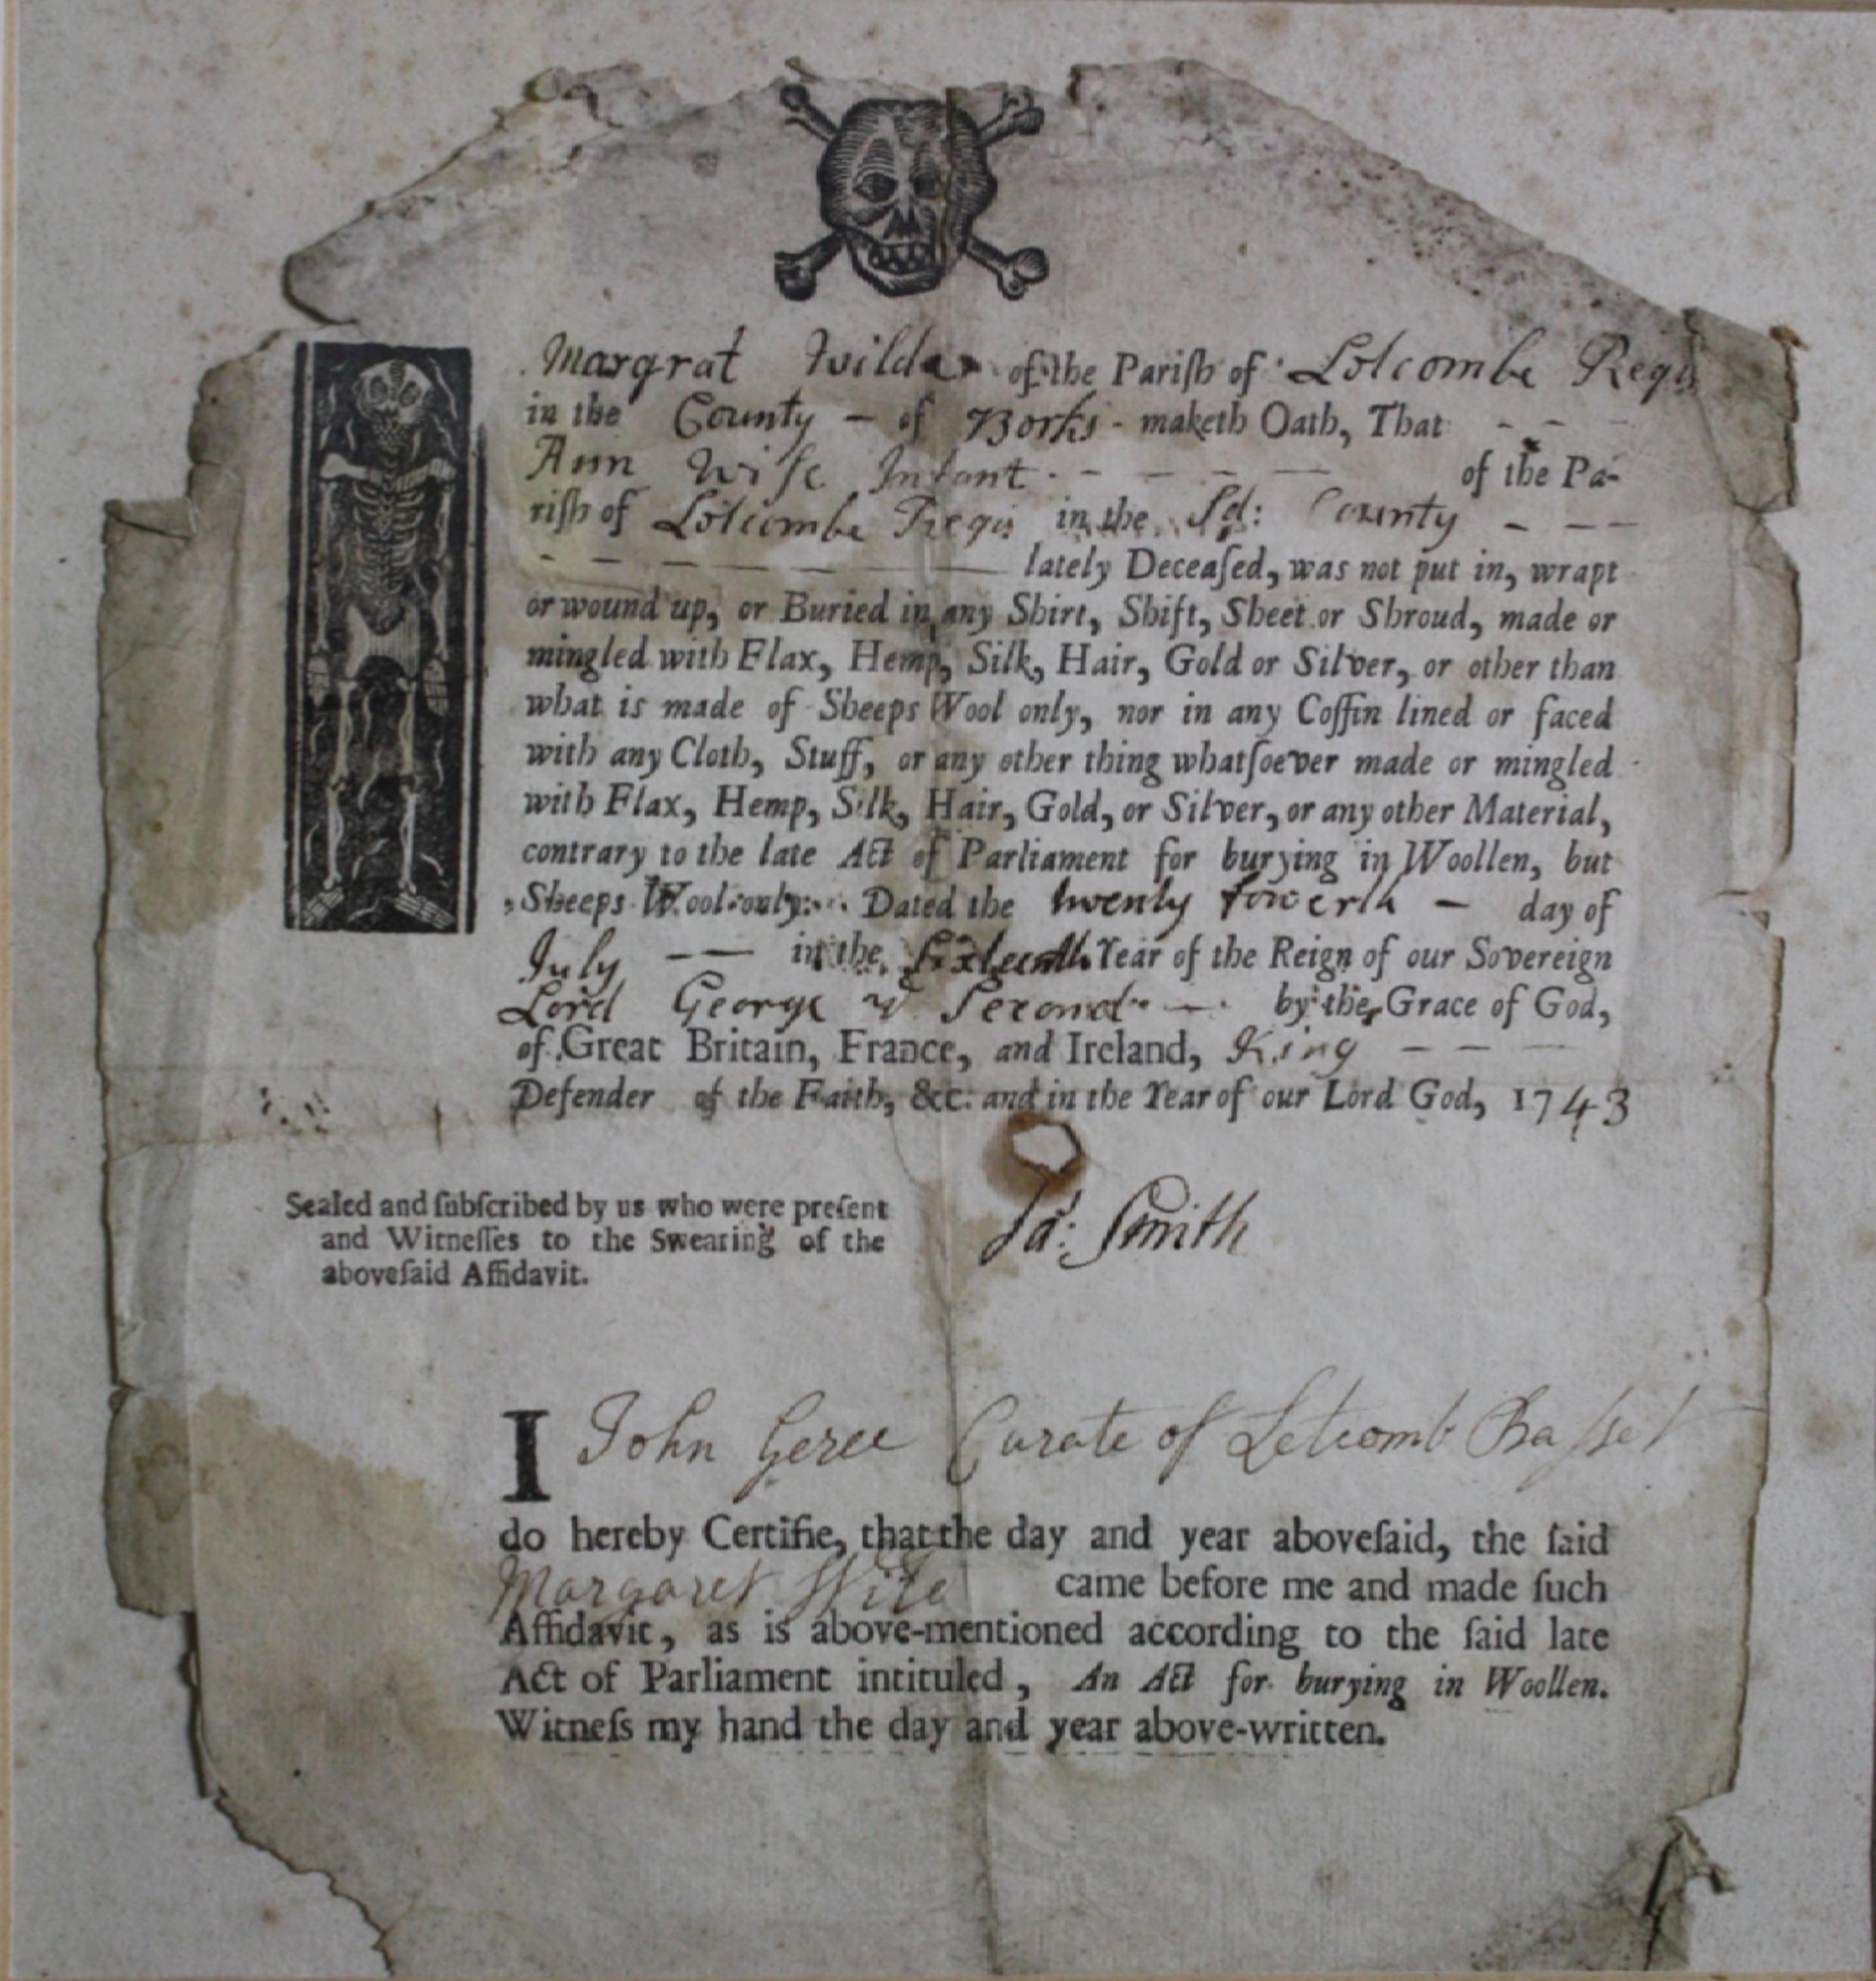 Margrat Wilder of the Pariſh of Lotcombe Regis
in the County – of Borks - maketh Oath, That - - -
Ann Wiſe Infant - - - - of the Pa-
riſh of Lotcombe Regis in the Sd: County - - -
- - - - - - - lately Deceaſed, was not put in, wrapt
or wound up, or Buried in any Shirt, Shift, Sheet or Shroud, made or
mingled with Flax, Hemp, Silk, Hair, Gold or Silver, or other than
what is made of Sheeps Wool only, nor in any Coffin lined or faced
with any Cloth, Stuff, or any other thing whatſoever made or mingled
with Flax, Hemp, Silk, Hair, Gold, or Silver, or any other Material,
contrary to the late Act of Parliament for burying in Woollen, but
Sheeps Wool only. Dated the twenty fowerth – day of
July – – in the Sixteenth Year of the Reign of our Sovereign
Lord George Second – by the Grace of God,
of Great Britain, France, and Ireland, King – – –
Defender of the Faith, &c. and in the Year of our Lord God, 1743
Sealed and ſubſcribed by us who were preſent
and Witneſſes to the Swearing of the
aboveſaid Affidavit.
Ja: Smith
I John Geree Curate of Letcomb Baſset
do hereby Certifie, that the day and year aboveſaid, the ſaid
Margaret came before me and made ſuch
Affidavit, as is above-mentioned according to the ſaid late
Act of Parliament intituled, An Act for burying in Woollen.
Witneſs my hand the day and year above-written.